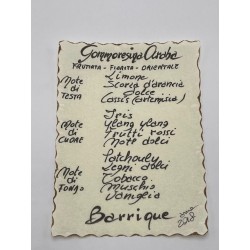 Gommoresina Ambra
FRUTTATA - FIORITA - ORIENTALE
Note di TESTA
Limone
Scorza d'arancia dolce
Cassis (artemisia)
Note di CUORE
Iris
Ylang ylang
Frutti rossi
Note dolci
Note di FONDO
Patchouly
Legni dolci
Tobacco
Muschio
Vaniglia
Barrique
2018